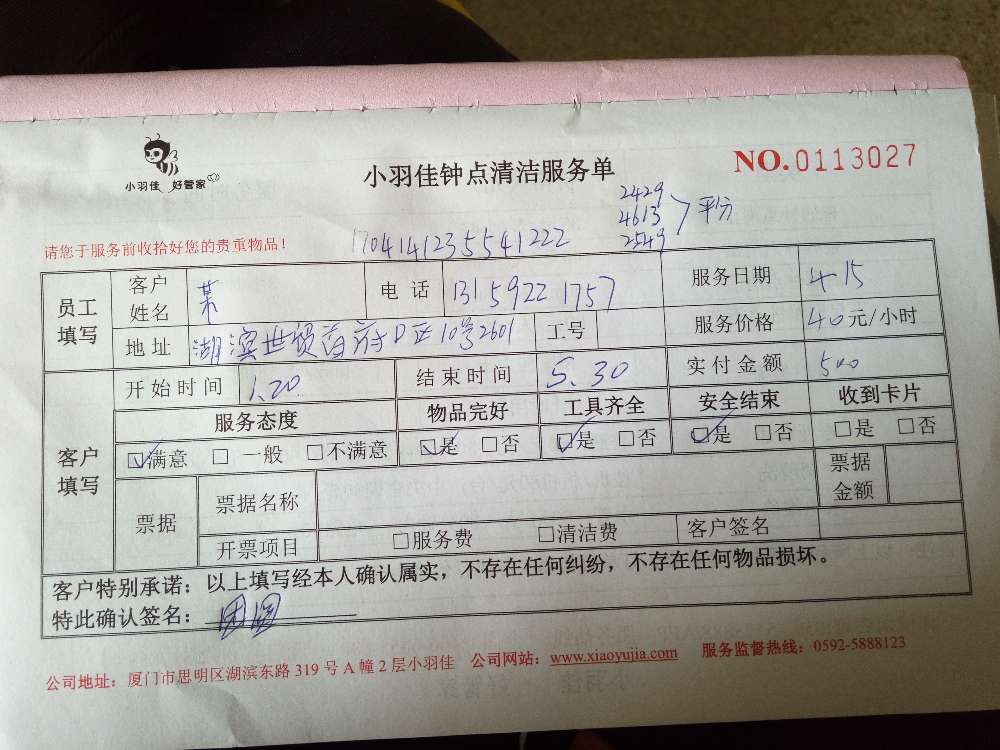 小羽佳 好管家
小羽佳钟点清洁服务单
NO.0113027
2429
4613 平分
2549
请您于服务前收拾好您的贵重物品!
1704141235541222
员工填写 客户姓名 电话 13159221757 服务日期 4 15
地址 湖滨世贸首府D区10号2601 工号 服务价格 40元/小时
客户填写 开始时间 1.20 结束时间 5.30 实付金额 500
服务态度 物品完好 工具齐全 安全结束 收到卡片
☑满意 □一般 □不满意 ☑是 □否 ☑是 □否 ☑是 □否 □是 □否
票据 票据名称 票据金额
开票项目 □服务费 □清洁费 客户签名
客户特别承诺：以上填写经本人确认属实，不存在任何纠纷，不存在任何物品损坏。
特此确认签名：
公司地址：厦门市思明区湖滨东路319号A幢2层小羽佳 公司网站：www.xiaoyujia.com 服务监督热线：0592-5888123